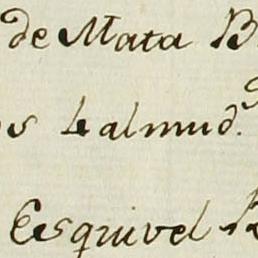 de Mata B
os 4 almud.^s
Esquivel